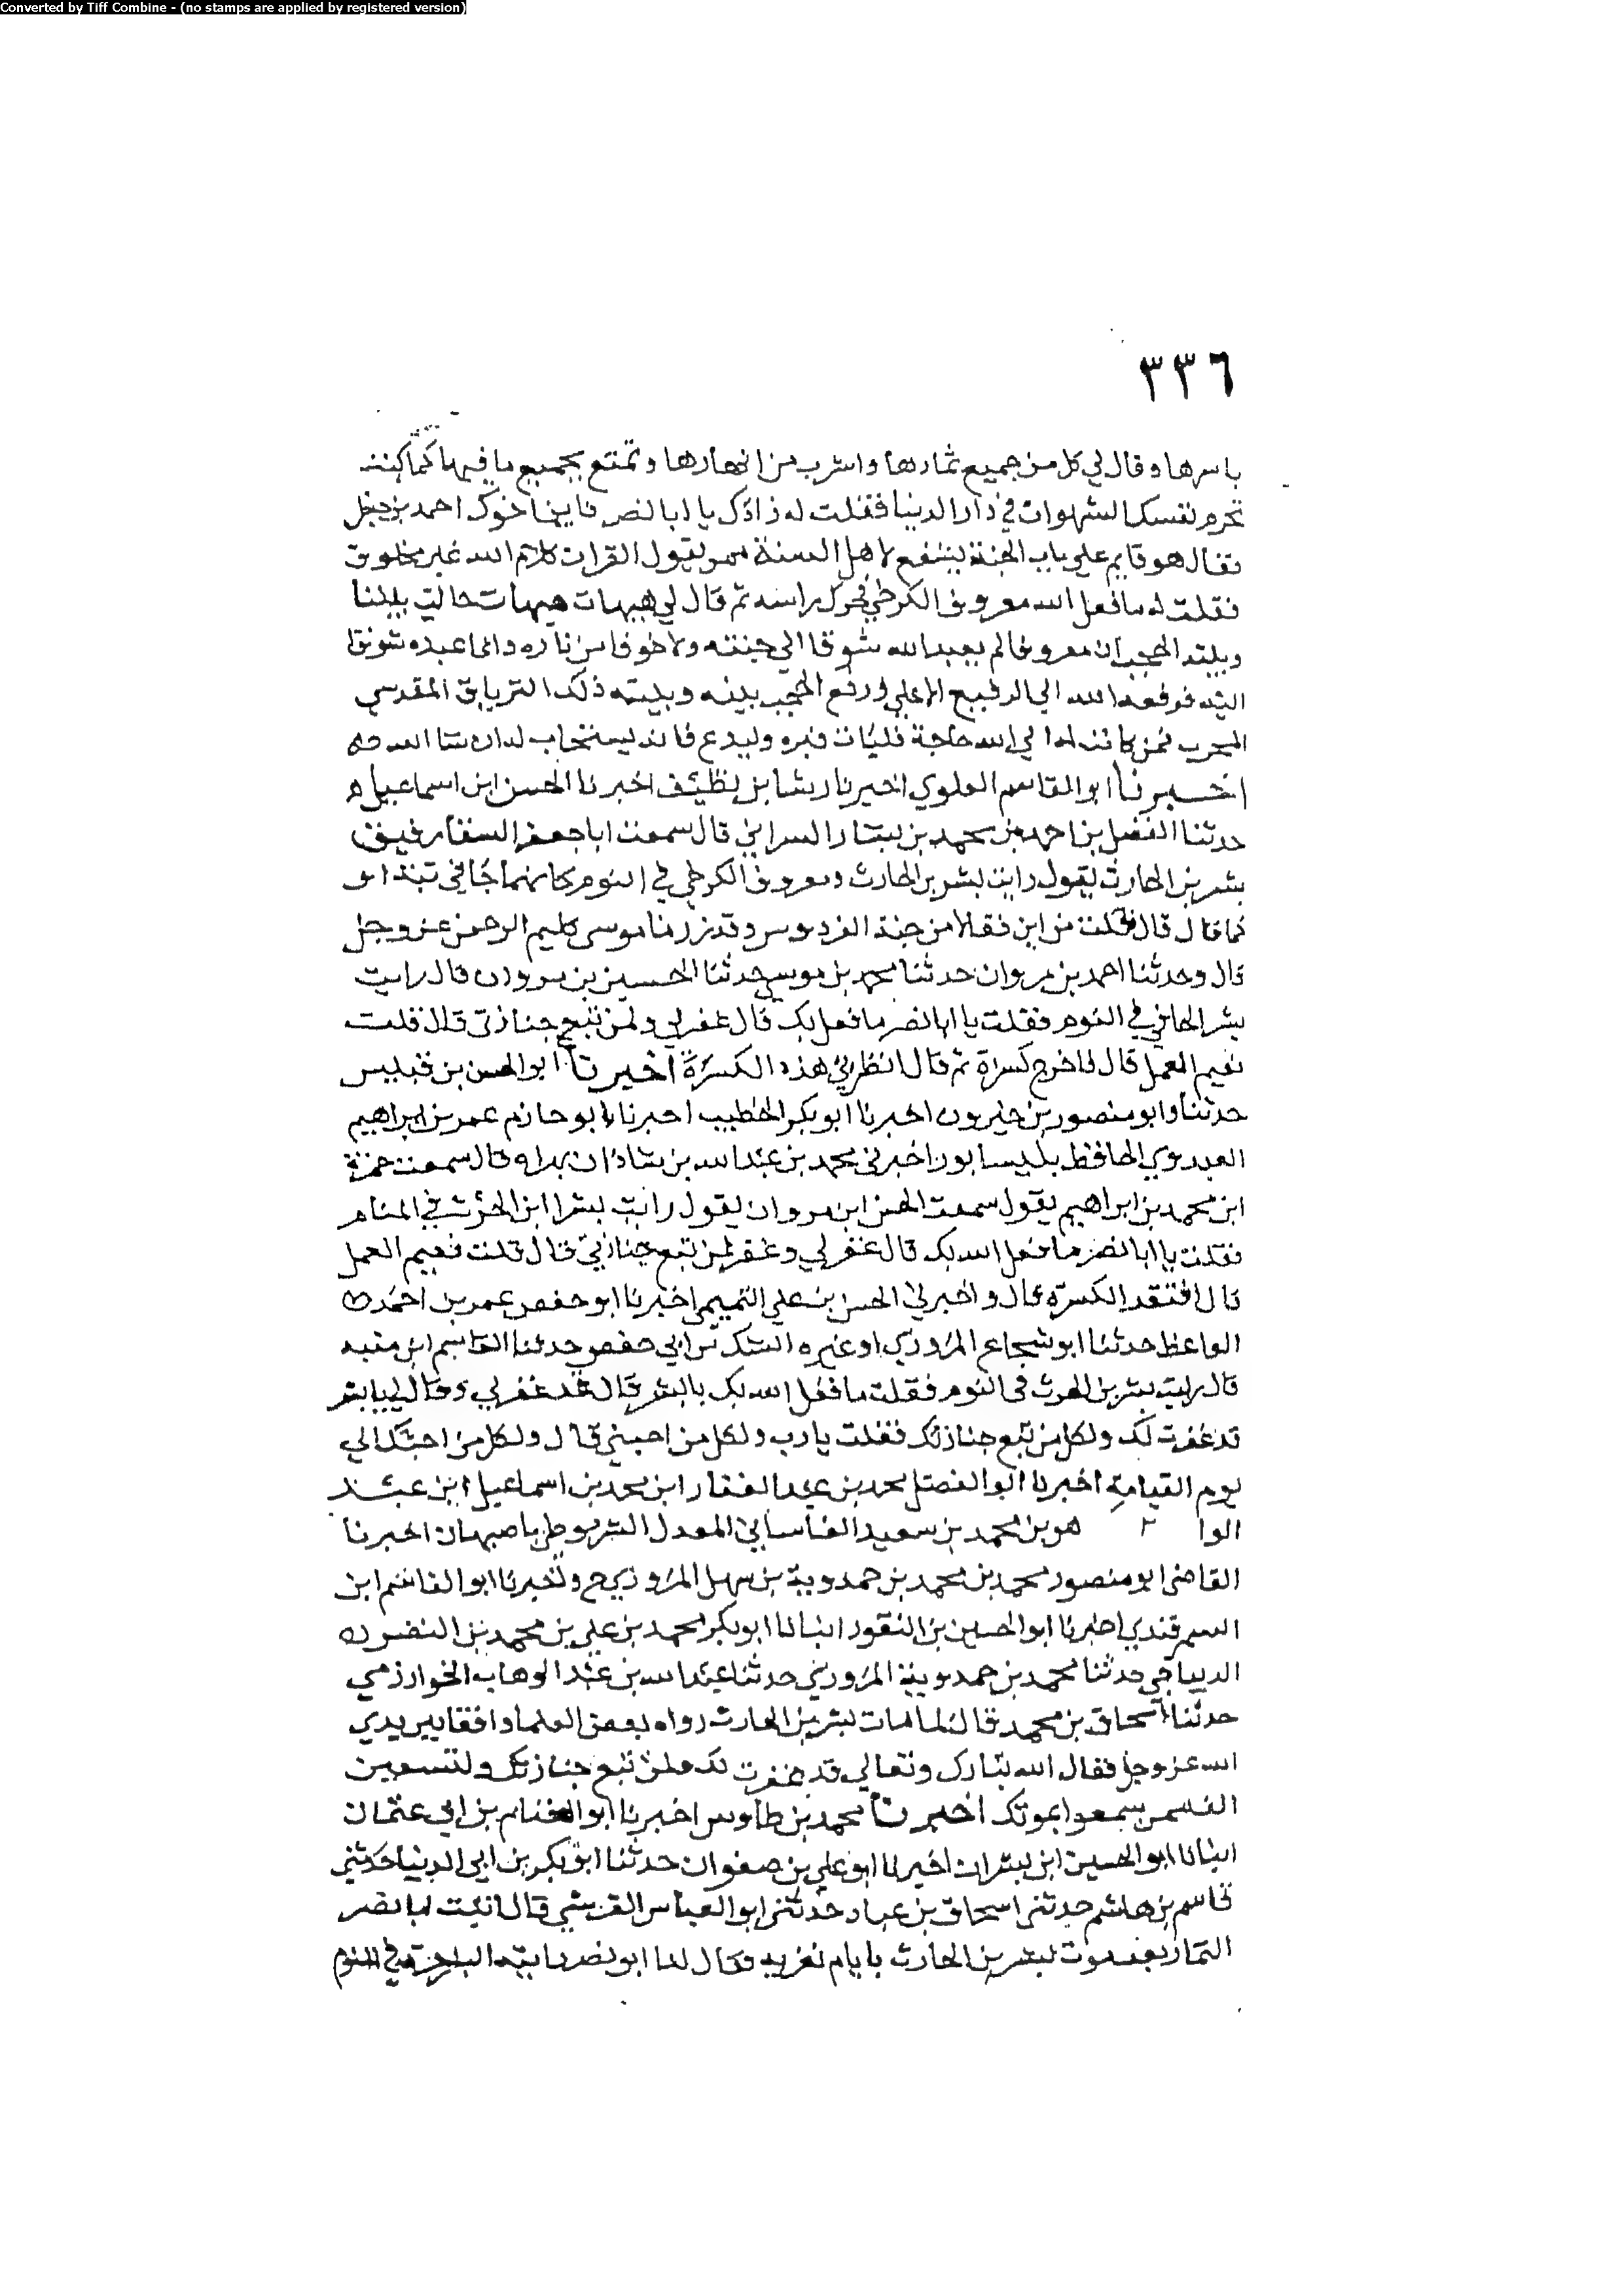 Converted by Tiff Combine - (no stamps are applied by registered version)
٣٣٦
باسرها وقال لي كل من جميع ثمارها واشرب من انهارها وتمتع بجميع ما فيها كما كنت
تحرم نفسك الشهوات في دار الدنيا فقلت له زادك يا ابا نصر فاين اخوك احمد بن حنبل
فقال هو قايم على باب الجنة يشفع لاهل السنة ممن يقول القران كلام الله غير مخلوق
فقلت له ما فعل الله معروف الكرخي فحرك راسه ثم قال لي هيهات هيهات حالت بيننا
وبينه الحجب ان معروفا لم يعبد الله شوقا الى جنته ولا خوفا من ناره وانما عبده شوقا
اليه فرفعه الله الى الرفيع الاعلى ورفع الحجب بينه وبينه ذلك الترياق المقدسي
المجرب فمن كانت له الى الله حاجة فليات قبره وليدع فانه يستجاب له ان شا الله
اخبرنا ابو القاسم العلوي اخبرنا رشا بن نظيف اخبرنا الحسن ابن اسماعيل
حدثنا الفضل بن احمد بن محمد بن يسار السراني قال سمعت ابا جعفر السقا رفيق
بشر بن الحارث يقول رايت بشر بن الحارث ومعروف الكرخي في النوم كانهما جاني
كما قال قال فقلت من اين فقالا من جنة الفردوس وقد زرنا موسى كليم الرحمن عز وجل
قال وحدثنا احمد بن مروان حدثنا محمد بن موسى حدثنا الحسين بن مروان قال رايت
بشر الحافي في النوم فقلت يا ابا نصر ما فعل بك قال غفر لي ولمن تبع جنازتي قال قلت
ففيم العمل قال فاخرج كسرة ثم قال انظر في هذه الكسرة اخبرنا ابو الحسن بن قبيس
حدثنا وابو منصور بن خيرون اخبرنا ابو بكر الخطيب اخبرنا ابو حازم عمر بن ابراهيم
العبدوي الحافظ بنيسابور اخبرني محمد بن عبد الله بن شاذان قال سمعت حمزة
ابن محمد بن ابراهيم يقول سمعت الحسن ابن مروان يقول رايت بشر ابن الحرث في المنام
فقلت يا ابا نصر ما فعل الله بك قال غفر لي وغفر لمن تبع جنازتي قال قلت ففيم العمل
قال افتقد الكسرة قال واخبرني الحسن بن علي التميمي اخبرنا ابو حفص عمر بن احمد
الواعظ حدثنا ابو شجاع المروزي او غيره الشك من ابي حفص حدثنا القاسم ابن منبه
قال رايت بشر بن الحرث في النوم فقلت ما فعل الله بك يا بشر قال قد غفر لي وقال لي يا بشر
قد غفرت لك ولكل من تبع جنازتك فقلت يا رب ولكل من احبني قال ولكل من احبك الي
يوم القيامة اخبرنا ابو الفضل محمد بن عبد الغفار ابن محمد بن اسماعيل ابن عبد
الوا ٢ هو بن محمد بن سعيد الفاساني المعدل الشروطي باصبهان اخبرنا
القاضي ابو منصور محمد بن محمد بن حمدوية بن سهل المروزي ح واخبرنا ابو القاسم ابن
السمرقندي اخبرنا ابو الحسين بن النقور انبانا ابو بكر محمد بن علي بن محمد بن النضر
الديباجي حدثنا محمد بن حمدوية المروزي حدثنا عبد الله بن عبد الوهاب الخوارزمي
حدثنا اسحاق بن محمد قال لما مات بشر بن الحارث رواه بعض العلما واقفا بين يدي
الله عز وجل فقال الله تبارك وتعالى قد غفرت لك ولمن تبع جنازتك ولتسعين
الف ممن سمعوا بموتك اخبرنا محمد بن طاوس اخبرنا ابو الغنايم بن ابي عثمان
انبانا ابو الحسين ابن بشران اخبرنا ابو علي بن صفوان حدثنا ابو بكر بن ابي الدنيا حدثني
قاسم بن هاشم حدثني اسحاق بن عباد حدثني ابو العباس القرشي قال اتيت ابا نصر
التمار بعد موت بشر بن الحارث بايام نعزيه فقال لنا ابو نصر رايته البارحة في النوم